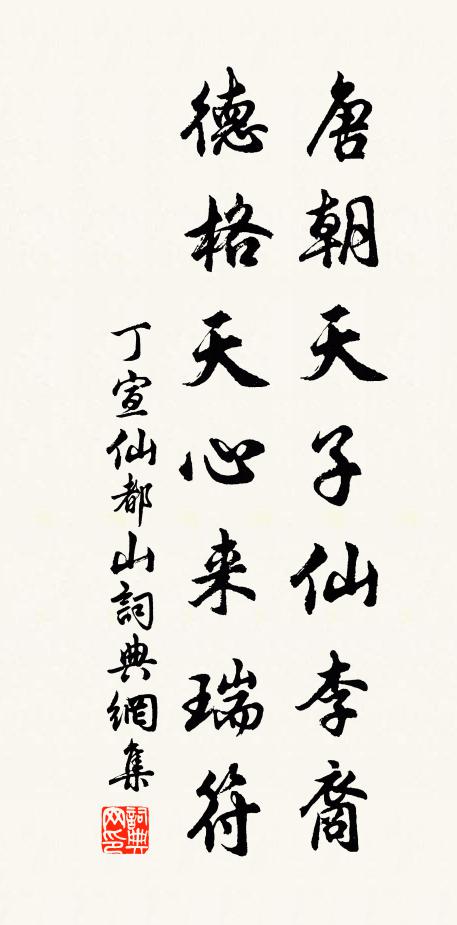 唐朝天子仙李裔
德格天心来瑞符
丁宣仙都山詞典網集
詞典网印